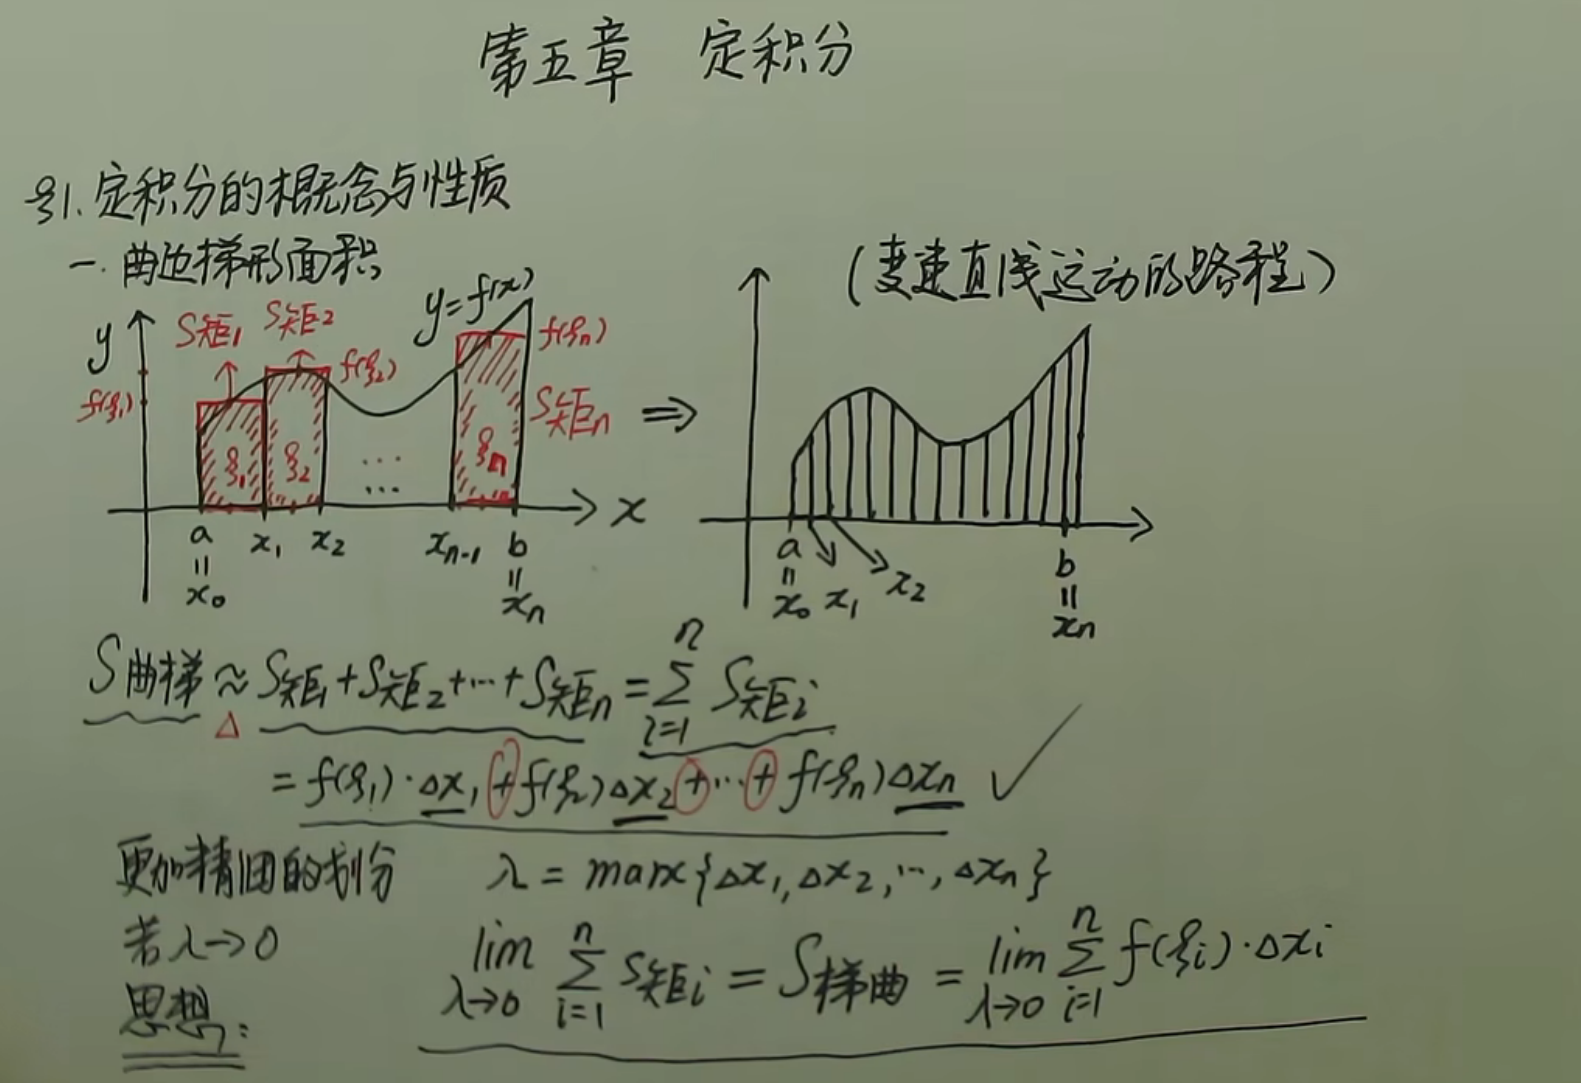 第五章 定积分
§1. 定积分的概念与性质
一. 曲边梯形面积
(变速直线运动的路程)
y=f(x)
y
S矩1
S矩2
f(ξ1)
f(ξ2)
f(ξn)
S矩n
ξ1
ξ2
...
...
ξn
⇒
x
a
x1
x2
xn-1
b
=
=
x0
xn
a
x1
x2
b
=
=
x0
xn
S曲梯 ≈ S矩1+S矩2+…+S矩n = ∑_{i=1}^{n} S矩i
Δ
= f(ξ1)·Δx1+f(ξ2)Δx2+…+f(ξn)Δxn ✓
更加精细的划分 λ = max{Δx1,Δx2,…,Δxn}
若λ→0 lim_{λ→0} ∑_{i=1}^{n} S矩i = S梯曲 = lim_{λ→0} ∑_{i=1}^{n} f(ξi)·Δxi
思想: